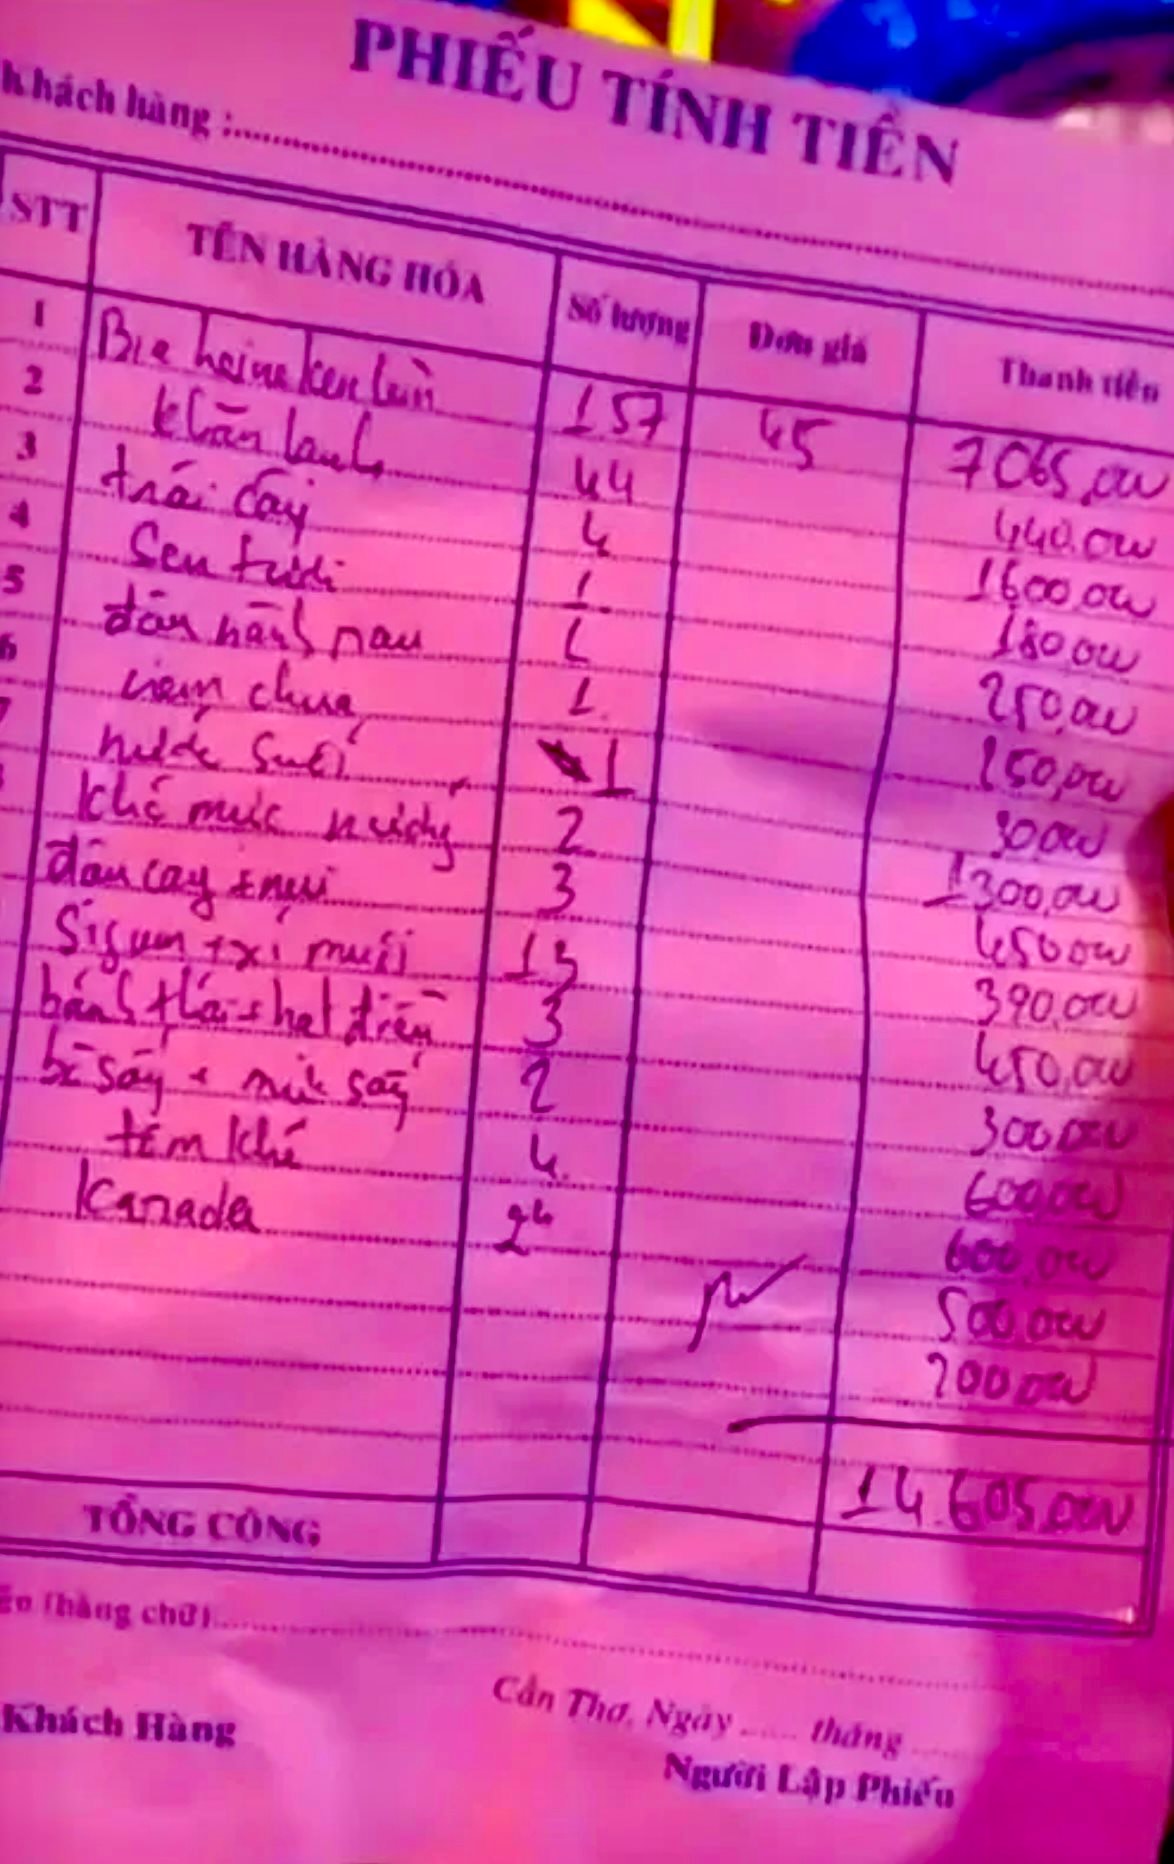 PHIẾU TÍNH TIỀN
Khách hàng :
STT TÊN HÀNG HÓA Số lượng Đơn giá Thành tiền
1 Bia heineken lùn 157 45 7065,000
2 khăn lạnh 44 440.000
3 trái cây 4 1600,000
4 Sen tươi 1 180,000
5 đậu hành nau 1 250,000
6 nem chua 1 150,000
7 nước suối 1 30,000
khô mực nướng 2 1300,000
đậu cay + nui 3 450,000
Sigum + xí muối 13 390,000
bánh thái + hạt điều 3 450,000
bò sấy + mực sấy 2 300,000
tôm khô 4 600,000
Kanada 24 600,000
500,000
200.000
14.605.000
TỔNG CỘNG
(bằng chữ)
Cần Thơ, Ngày ...... tháng ......
Khách Hàng Người Lập Phiếu